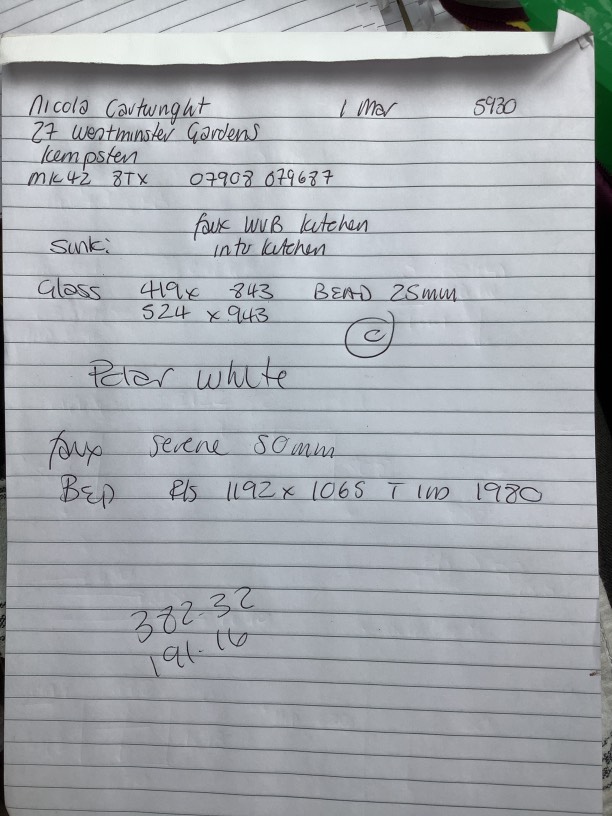 Nicola Cartwright 1 Mar 5930
27 Westminster Gardens
Kempsten
MK42 8TX 07908 079687
faux WVB kitchen
Sink: into kitchen
Glass 419 x 843 BEAD 25mm
524 x 943
C
Polar white
faux serene 50mm
BED R/S 1192 x 1065 T 1980
382.32
191.16